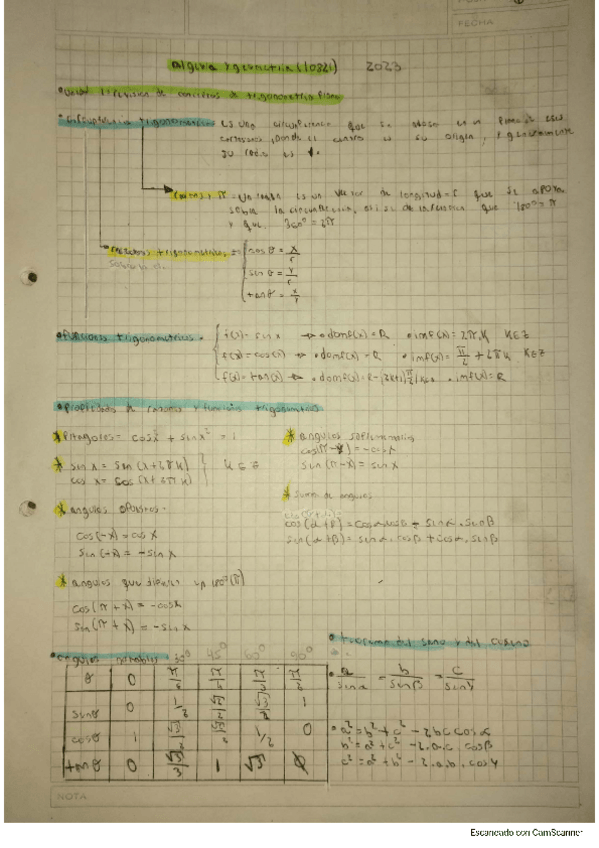 FECHA
Algebra y geometria (10821) 2023
• Unidad 1: revision de conceptos de trigonometria plana
• Circunferencia trigonometrica = es una circunferencia que se ubica en un plano de ejes
cartesianos, donde el centro es su origen, y generalmente
su radio es 1.
Radianes y π = Un radian es un vector de longitud = r que se apoya
sobre la circunferencia, asi se que 180° = π
y que 360° = 2π
razones trigonometricas = cos θ = x/r
sin θ = y/r
tan θ = x/y
• funciones trigonometricas = f(x) = sin x → • dom f(x) = R • im f(x) = 2π.K K∈Z
f(x) = cos(x) → • dom f(x) = R • im f(x) = π/2 + 2πK K∈Z
f(x) = tan(x) → • dom f(x) = R - (2k+1) π/2 / k∈Z • im f(x) = R
• propiedades de razones y funciones trigonometricas
* Pitagoras = cos x² + sin x² = 1
* angulos suplementarios
cos(π - x) = -cos x
sin(π - x) = sin x
* sin x = sin (x + 2πK)
cos x = cos (x + 2πK) } K ∈ Z
* suma de angulos
cos(α+β) = cosα.cosβ - sinα.sinβ
sin(α+β) = sinα.cosβ + cosα.sinβ
* angulos opuestos =
cos(-x) = cos x
sin(-x) = -sin x
* angulos que difieren un 180° (π)
cos(π + x) = -cos x
sin(π + x) = -sin x
• angulos notables 30° 45° 60° 90°
θ 0 π/6 π/4 π/3 π/2
sinθ 0 1/2 √2/2 √3/2 1
cosθ 1 √3/2 √2/2 1/2 0
tanθ 0 √3/3 1 √3 ∅
• teorema del seno y del coseno
• a/sinα = b/sinβ = c/sinγ
• a² = b² + c² - 2bc cosα
b² = a² + c² - 2.a.c. cosβ
c² = a² + b² - 2.a.b. cosγ
NOTA
Escaneado con CamScanner